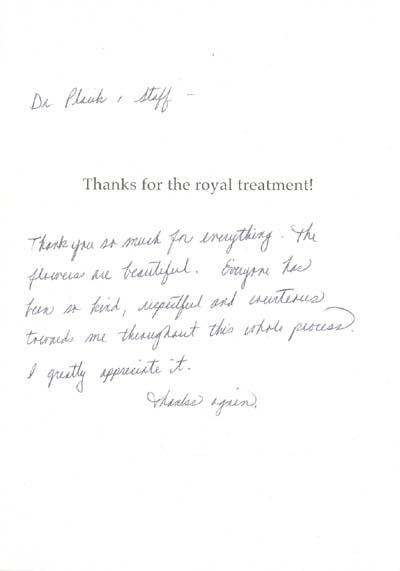 Dr Plank & Staff –
Thanks for the royal treatment!
Thank you so much for everything. The
flowers are beautiful. Everyone has
been so kind, respectful and courteous
towards me throughout this whole process.
I greatly appreciate it.
Thanks again.